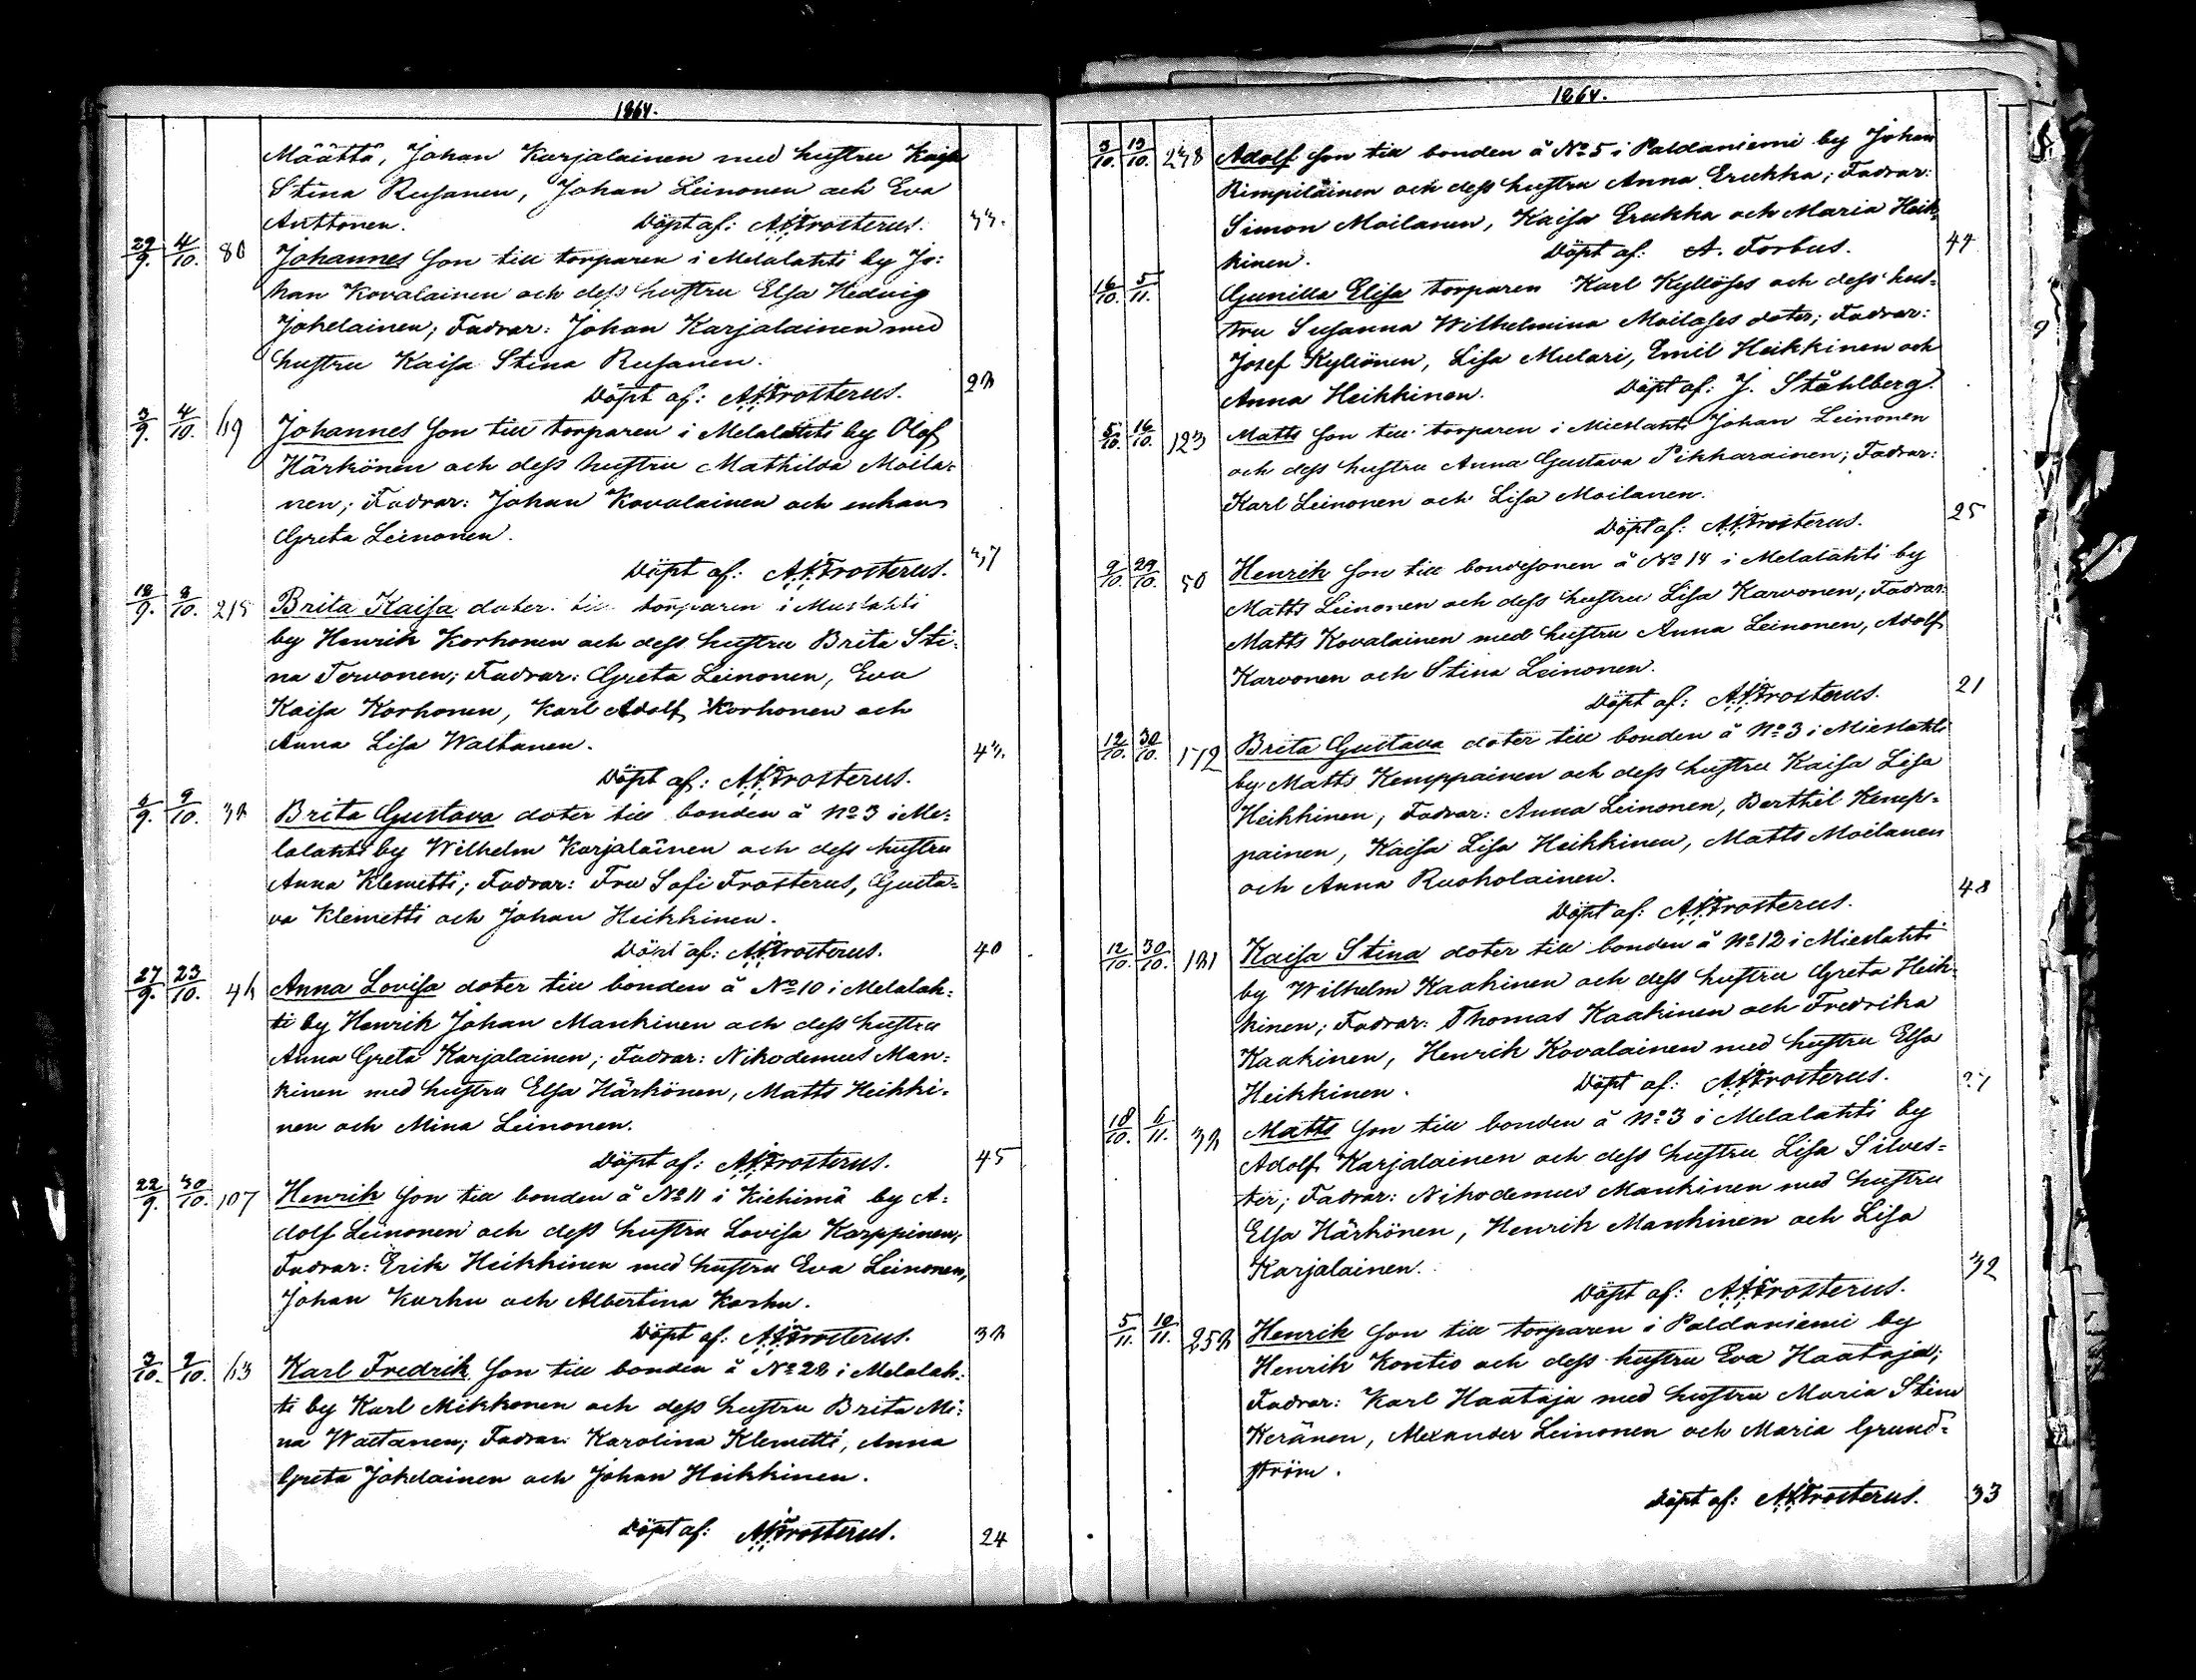 1864.
Määttä, Johan Karjalainen med hustru Kajsa
Stina Rusanen, Johan Leinonen och Eva
Anttonen. Döpt af: A. F. Frosterus. 33.
29/9. 4/10. 80 Johannes son till torparen i Melalahti by Jo:
han Kovalainen och dess hustru Elsa Hedvig
Johelainen; Fadrar: Johan Karjalainen med
hustru Kaisa Stina Rusanen.
Döpt af: A. F. Frosterus.
3/9. 4/10. Johannes son till torparen i Melalahti by Olof
Härkönen och dess hustru Mathilda Moila:
nen; Fadrar: Johan Kovalainen och enkan
Greta Leinonen.
Döpt af: A. F. Frosterus. 37
18/9. 8/10. 215 Brita Kaisa doter till torparen i Mieslahti
by Henrik Korhonen och dess hustru Brita Sti:
na Tervonen; Fadrar: Greta Leinonen, Eva
Kaisa Korhonen, Karl Adolf Korhonen och
Anna Lisa Waltanen.
Döpt af: A. F. Frosterus. 43.
9/10. Brita Gustava doter till bonden å No 3 i Me:
lalahti by Wilhelm Karjalainen och dess hustru
Anna Klemetti; Fadrar: Fru Sofi Frosterus, Gusta=
va Klemetti och Johan Heikkinen.
Döpt af: A. F. Frosterus. 40
27/9. 23/10. Anna Lovisa doter till bonden å No 10 i Melalah:
ti by Henrik Johan Mankinen och dess hustru
Anna Greta Karjalainen; Fadrar: Nikodemus Man=
kinen med hustru Elsa Härkönen, Matts Heikki=
nen och Mina Leinonen.
Döpt af: A. F. Frosterus. 45
22/9. 30/10. 107 Henrik son till bonden å No 11 i Kiehimä by A=
dolf Leinonen och dess hustru Lovisa Karppinen;
Fadrar: Erik Heikkinen med hustru Eva Leinonen,
Johan Karhu och Albertina Karhu.
Döpt af: A. F. Frosterus.
3/10. 9/10. Karl Fredrik son till bonden å No 28 i Melalah:
ti by Karl Mikkonen och dess hustru Brita Mi:
na Waltanen; Fadrar: Karolina Klemetti, Anna
Greta Johelainen och Johan Heikkinen.
Döpt af: A. F. Frosterus. 24
1864.
3/10. 13/10. 248 Adolf son till bonden å No 5 i Paldaniemi by Johan
Rimpiläinen och dess hustru Anna Erukka; Fadrar:
Simon Moilanen, Kaisa Erukka och Maria Heik=
kinen. Döpt af: A. Forbus. 44
16/10. 5/11. Gunilla Elisa torparen Karl Kyllöses och dess hus=
tru Susanna Wilhelmina Moilases doter; Fadrar:
Josef Kyllönen, Lisa Mulari, Emil Heikkinen och
Anna Heikkinen. Döpt af: J. Ståhlberg.
5/10. 16/10. 123 Matts son till torparen i Mieslahti Johan Leinonen
och dess hustru Anna Gustava Pikkarainen; Fadrar:
Karl Leinonen och Lisa Moilanen.
Döpt af: A. F. Frosterus. 25
9/10. 29/10. 50 Henrik son till bondesonen å No 14 i Melalahti by
Matts Leinonen och dess hustru Lisa Karvonen; Fadrar:
Matts Kovalainen med hustru Anna Leinonen, Adolf
Karvonen och Stina Leinonen.
Döpt af: A. F. Frosterus. 21
12/10. 30/10. 172 Brita Gustava doter till bonden å No 3 i Mieslahti
by Matts Kemppainen och dess hustru Kaisa Lisa
Heikkinen; Fadrar: Anna Leinonen, Berthil Kemp=
painen, Kaisa Lisa Heikkinen, Matts Moilanen
och Anna Ruoholainen.
Döpt af: A. F. Frosterus. 48
12/10. 30/10. Kaisa Stina doter till bonden å No 12 i Mieslahti
by Wilhelm Kaakinen och dess hustru Greta Heik=
kinen; Fadrar: Thomas Kaakinen och Fredrika
Kaakinen, Henrik Kovalainen med hustru Elsa
Heikkinen. Döpt af: A. F. Frosterus.
18/10. 6/11. Matts son till bonden å No 3 i Melalahti by
Adolf Karjalainen och dess hustru Lisa Silves=
ter; Fadrar: Nikodemus Mankinen med hustru
Elsa Härkönen, Henrik Mankinen och Lisa
Karjalainen.
Döpt af: A. F. Frosterus. 32
5/11. Henrik son till torparen i Paldaniemi by
Henrik Kontio och dess hustru Eva Haataja;
Fadrar: Karl Haataja med hustru Maria Stina
Keränen, Alexander Leinonen och Maria Grund=
ström.
Döpt af: A. F. Frosterus. 33